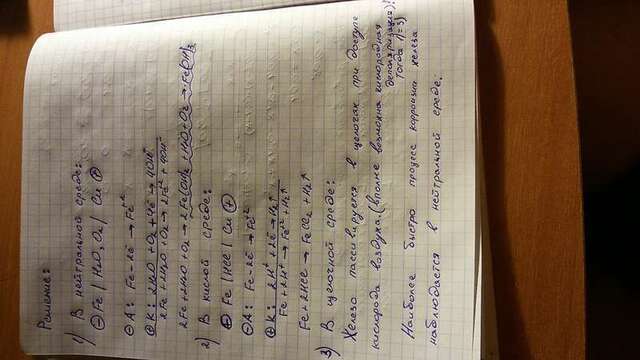 Решение:
1) В нейтральной среде:
⊖ Fe | H2O, O2 | Cu ⊕
⊖ A: Fe - 2ē → Fe+2
⊕ K: 2H2O + O2 + 4ē → 4OH-
2Fe + 2H2O + O2 → 2Fe+2 + 4OH-
2Fe + 2H2O + O2 → 2Fe(OH)2 + H2O + O2 → Fe(OH)3
2) В кислой среде:
⊖ Fe | HCl | Cu ⊕
⊖ A: Fe - 2ē → Fe+2
⊕ K: 2H+ + 2ē → H2↑
Fe + 2H+ → Fe+2 + H2↑
Fe + 2HCl → FeCl2 + H2↑
3) В щелочной среде:
Железо пассивируется в щелочах при доступе
кислорода воздуха. (вполне возможна кислородная
деполяризация)!
тогда 1)=3)
Наиболее быстро процесс коррозии железа
наблюдается в нейтральной среде.